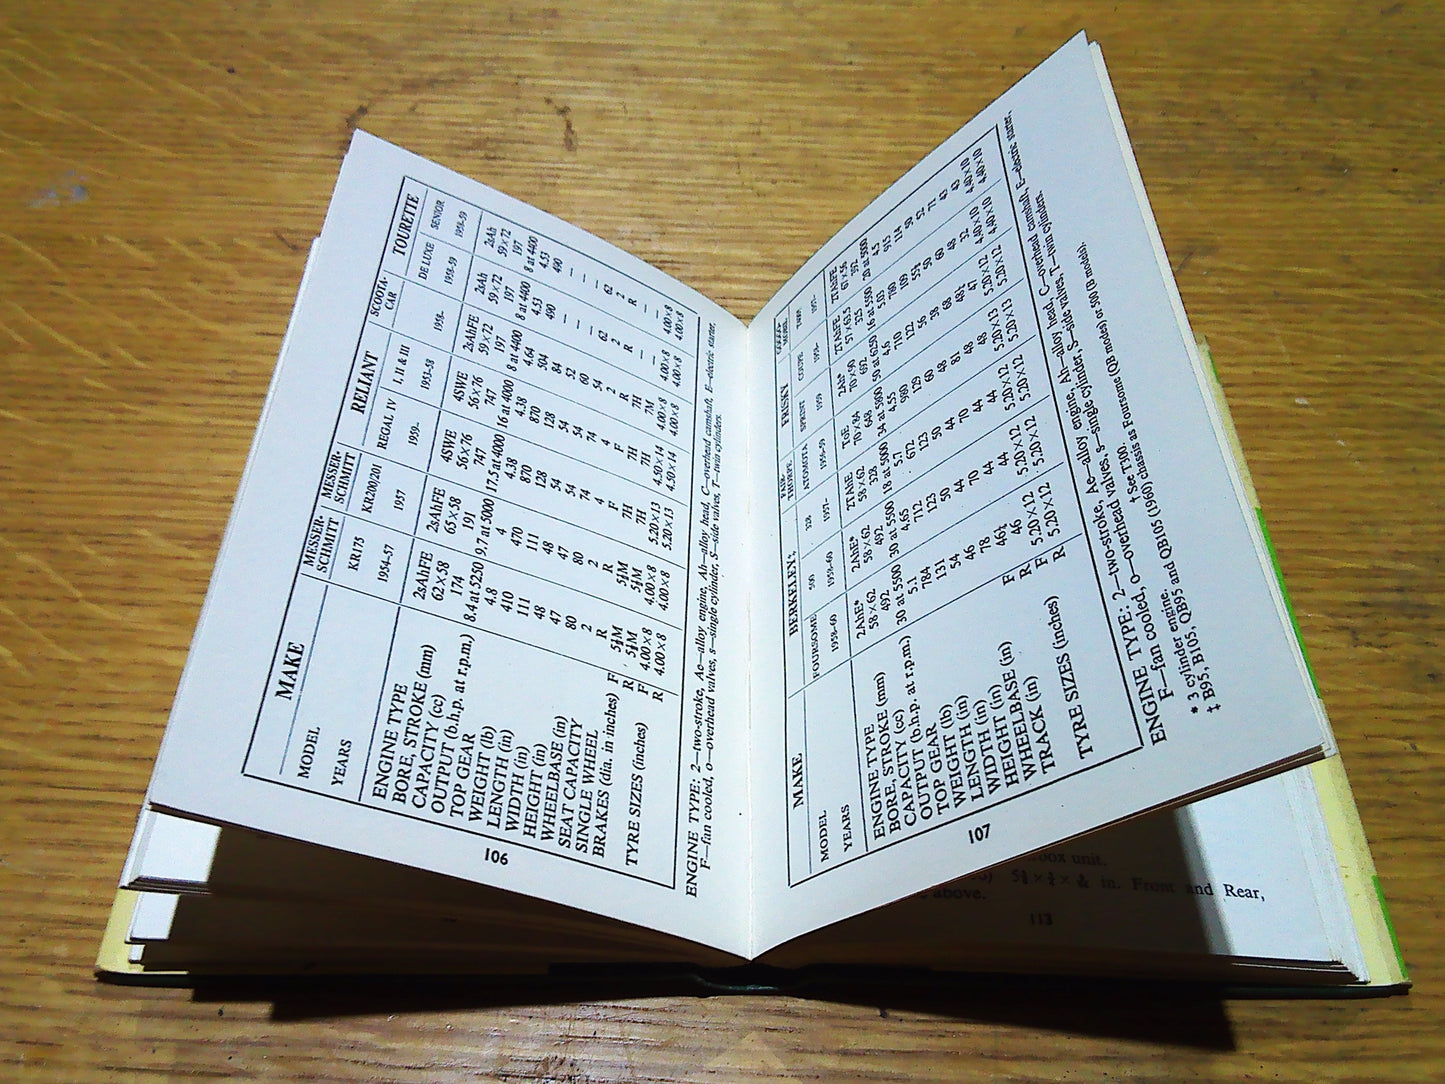 MAKE MESSER-SCHMITT MESSER-SCHMITT RELIANT SCOOTA-CAR TOURETTE
MODEL KR175 KR200/201 REGAL IV I, II & III DE LUXE SENIOR
YEARS 1954–57 1957 1959– 1953–58 1958– 1958–59 1958–59
ENGINE TYPE 2sAhFE 2sAhFE 4SWE 4SWE 2sAhFE 2sAh 2sAh
BORE, STROKE (mm) 62×58 65×58 56×76 56×76 59×72 59×72 59×72
CAPACITY (cc) 174 191 747 747 197 197 197
OUTPUT (b.h.p. at r.p.m.) 8.4 at 5250 9.7 at 5000 17.5 at 4000 16 at 4000 8 at 4400 8 at 4400 8 at 4400
TOP GEAR 4.8 4 4.38 4.38 4.64 4.53 4.53
WEIGHT (lb) 410 470 870 870 504 490 490
LENGTH (in) 111 111 128 128 84 — —
WIDTH (in) 48 48 54 54 52 — —
HEIGHT (in) 47 47 54 54 60 — —
WHEELBASE (in) 80 80 74 74 54 62 62
SEAT CAPACITY 2 2 4 4 2 2 2
SINGLE WHEEL R R F F R R R
BRAKES (dia. in inches) F 5½M 5½M 7H 7H 7H — —
R 5½M 5½M 7H 7H 7M — —
TYRE SIZES (inches) F 4.00×8 4.00×8 5.20×13 4.50×14 4.00×8 4.00×8 4.00×8
R 4.00×8 4.00×8 5.20×13 4.50×14 4.00×8 4.00×8 4.00×8
ENGINE TYPE: 2—two-stroke, Ae—alloy engine, Ah—alloy head, C—overhead camshaft, E—electric starter,
F—fan cooled, o—overhead valves, s—single cylinder, S—side valves, T—twin cylinders.
106
MAKE BERKELEY‡ FAIR-THORPE FRISKY GOGGO-MOBIL
MODEL FOURSOME 500 328 ATOMOTA SPRINT COUPE
YEARS 1958–60 1958–60 1957– 1958–59 1959
ENGINE TYPE 2AhE* 2AhE* 2TAhFE ToE 2Ah* 2TAhFE 2TAhFE
BORE, STROKE (mm) 58×62 58×62 58×62 57×63.5 67×56
CAPACITY (cc) 492 492 328 325 392
OUTPUT (b.h.p. at r.p.m.) 30 at 5500 30 at 5500 18 at 5000 16 at 5500 20 at 5000
TOP GEAR 5.1 4.65 4.55 4.6 4.5
WEIGHT (lb) 784 712 672 980 710 915
LENGTH (in) 131 123 123 129 122 109 114
WIDTH (in) 54 50 50 60 56 50
HEIGHT (in) 46 44 44 48 38 52
WHEELBASE (in) 78 70 70 81 68 71
TRACK (in) F 46½ 44 44 48 48 43
R 46 44 44 48 47 43
TYRE SIZES (inches) F 5.20×12 5.20×12 5.20×12 5.20×13 5.20×12 4.40×10 4.40×10
R 5.20×12 5.20×12 5.20×12 5.20×13 5.20×12 4.40×10 4.40×10
ENGINE TYPE: 2—two-stroke, Ae—alloy engine, Ah—alloy head, C—overhead camshaft, E—electric starter,
F—fan cooled, o—overhead valves, s—single cylinder, S—side valves, T—twin cylinders.
* 3 cylinder engine. † See T700.
‡ B95, B105, QB95 and QB105 (1960) chassis as Foursome (QB models) or 500 (B models),
107
unit.
in. Front and Rear,
above.
113